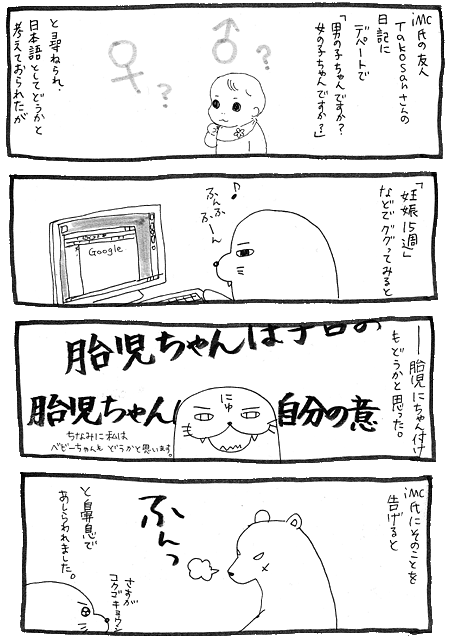 iMC氏の友人
Takosanさんの
日記に
デパートで
「男の子ちゃんですか?
女の子ちゃんですか?」
と尋ねられ、
日本語としてどうかと
考えておられたが
「妊娠15週」
などでググってみると
♪
ふんふ
ふーん
Google
―胎児にちゃん付け
もどうかと思った。
胎児ちゃんは子宮の
胎児ちゃん
自分の意
にゅ
ちなみに私は
ベビーちゃんも どうかと思います。
iMC氏にそのことを
告げると
ふんっ
と鼻息で
あしらわれました。
さすが
コクゴキョウシ